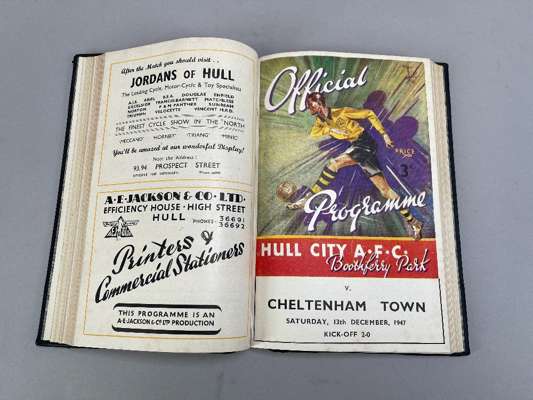 After the Match you should visit . .
JORDANS OF HULL
The Leading Cycle, Motor-Cycle & Toy Specialists
A.J.S. ARIEL B.S.A. DOUGLAS ENFIELD
EXCELSIOR FRANCIS-BARNETT MATCHLESS
NORTON P & M PANTHER SUNBEAM
TRIUMPH VELOCETTE VINCENT H.R.D.
THE FINEST CYCLE SHOW IN THE "NORTH"
"MECCANO" "HORNBY" "TRIANG" "MINIC"
You'll be amazed at our wonderful Display!
Note the Address :
93,94 PROSPECT STREET
A·E·JACKSON & CO·LTD·
EFFICIENCY HOUSE · HIGH STREET
HULL PHONES- 36691
36692
Printers &
Commercial Stationers
THIS PROGRAMME IS AN
A·E·JACKSON & Co LTD PRODUCTION
Official
PRICE
3D
Programme
HULL CITY A·F·C·
Boothferry Park
V.
CHELTENHAM TOWN
SATURDAY, 13th DECEMBER, 1947
KICK-OFF 2-0